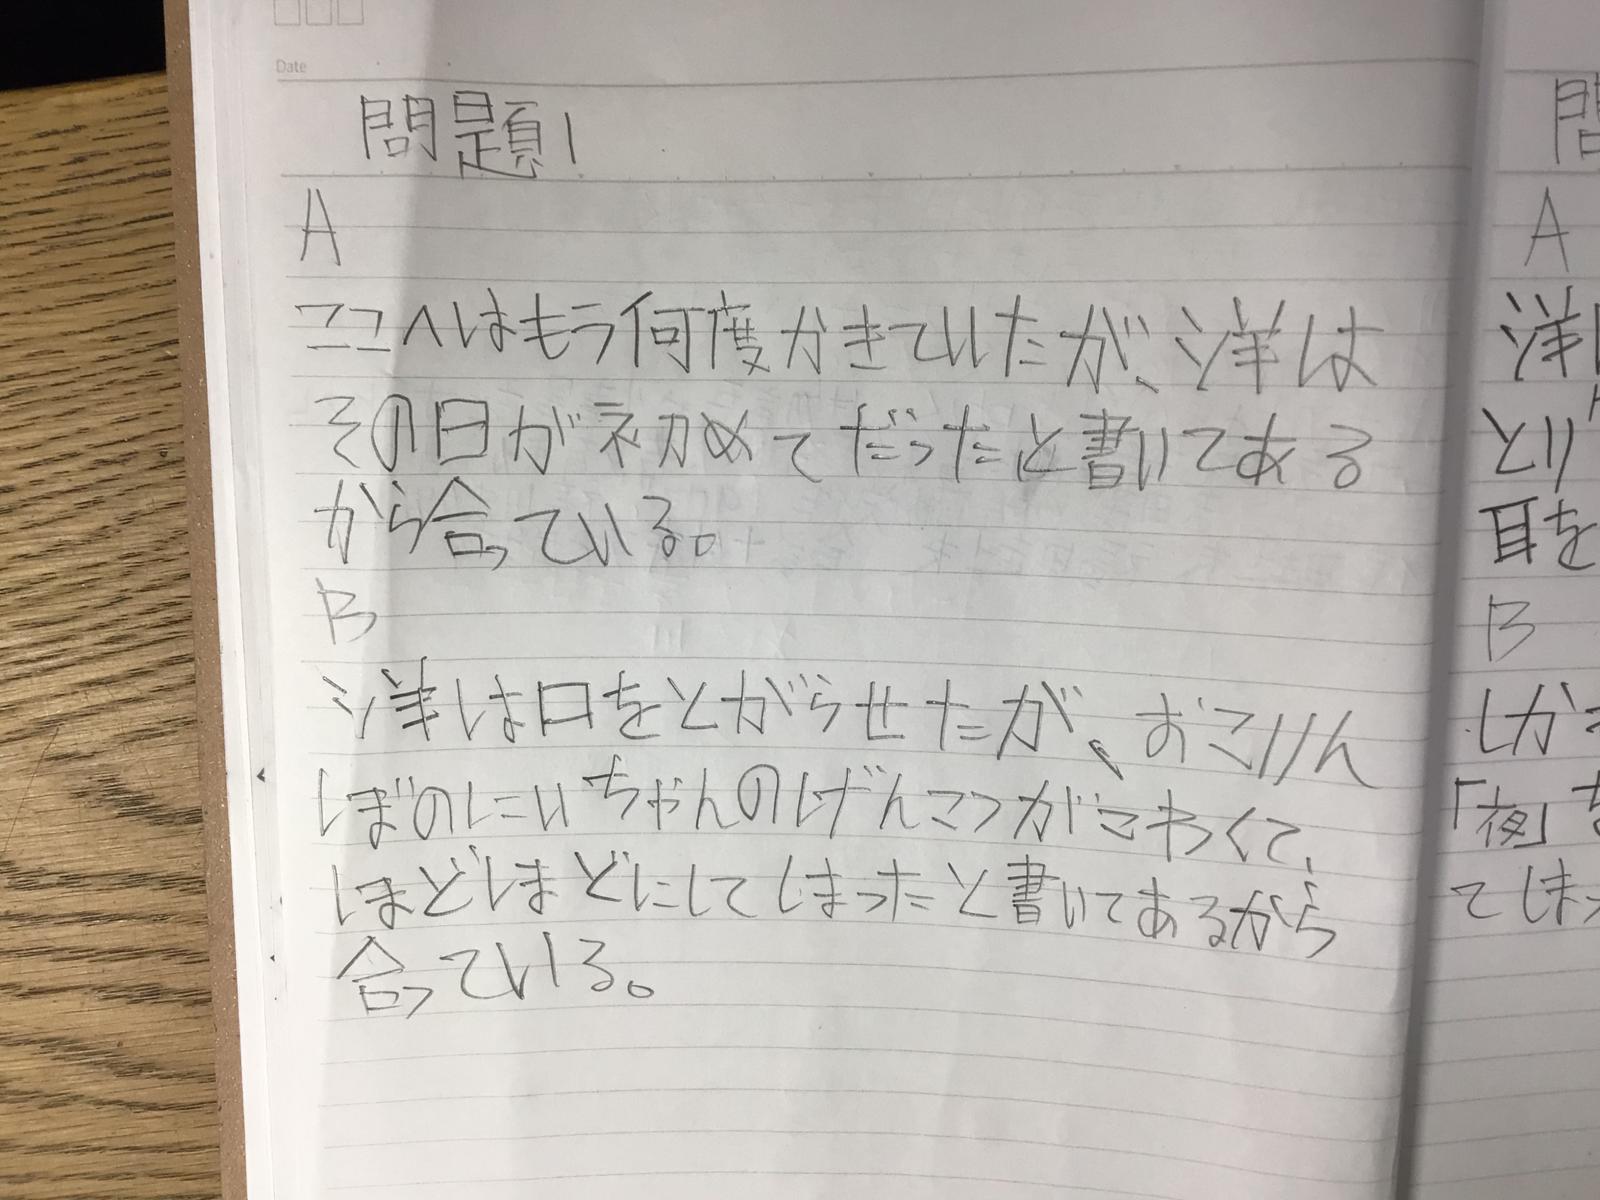 Date
問題1
A
ここへはもう何度かきていたが、洋は
その日が初めてだったと書いてある
から合っている。
B
洋は口をとがらせたが、おこりん
ぼのにいちゃんのげんこつがこわくて、
ほどほどにしてしまったと書いてあるから
合っている。
問
A
洋
とり
耳を
B
しか
「夜」
てしまっ